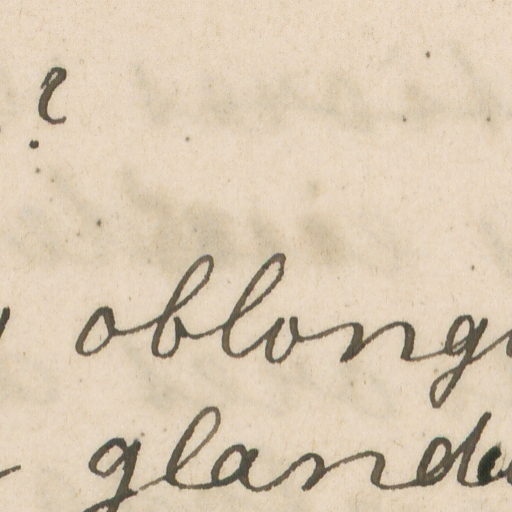 ?
oblong
gland